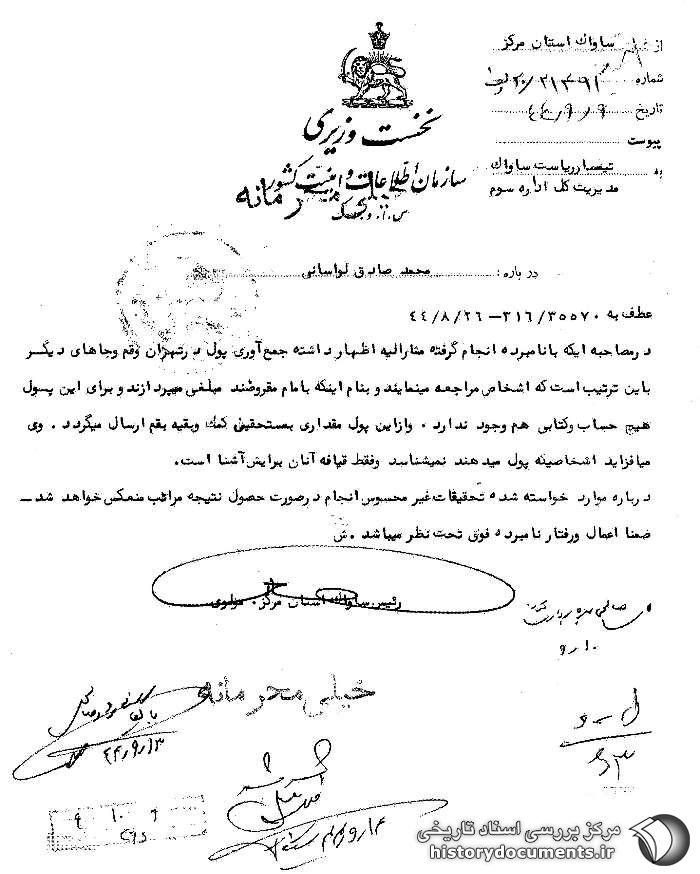 از ساواك استان مرکز
شماره ۲۰/۲۱۴۹۱
تاریخ ۴۴/۹/۹
پیوست
به تیمسار ریاست ساواك
مدیریت کل اداره سوم
نخست وزیری
سازمان اطلاعات و امنیت کشور
س.ا.و.ا.ک
خیلی محرمانه
درباره : محمد صادق لواسانی
عطف به ۳۱۶/۳۵۵۷۰ – ۴۴/۸/۲۶
در مصاحبه ایکه با نامبرده انجام گرفته مشارالیه اظهار داشته جمع‌آوری پول در تهران وقم وجاهای دیگر
باین ترتیب است که اشخاص مراجعه مینمایند و بنام اینکه بامام مقروضند مبلغی میپردازند و برای این پول
هیچ حساب وکتابی هم وجود ندارد ۰ وازاین پول مقداری بمستحقین کمك وبقیه بقم ارسال میگردد . وی
میافزاید اشخاصیکه پول میدهند نمیشناسد وفقط قیافه آنان برایش آشنا است.
درباره موارد خواسته شده تحقیقات غیر محسوس انجام درصورت حصول نتیجه مراتب منعکس خواهد شد ــ
ضمنا اعمال ورفتار نامبرده فوق تحت نظر میباشد . ش
رئیس ساواك استان مرکز. مولوی
۱۰ر۹
خیلی محرمانه
۴۴ر۹ر۱۳
مرکز بررسی اسناد تاریخی
historydocuments.ir